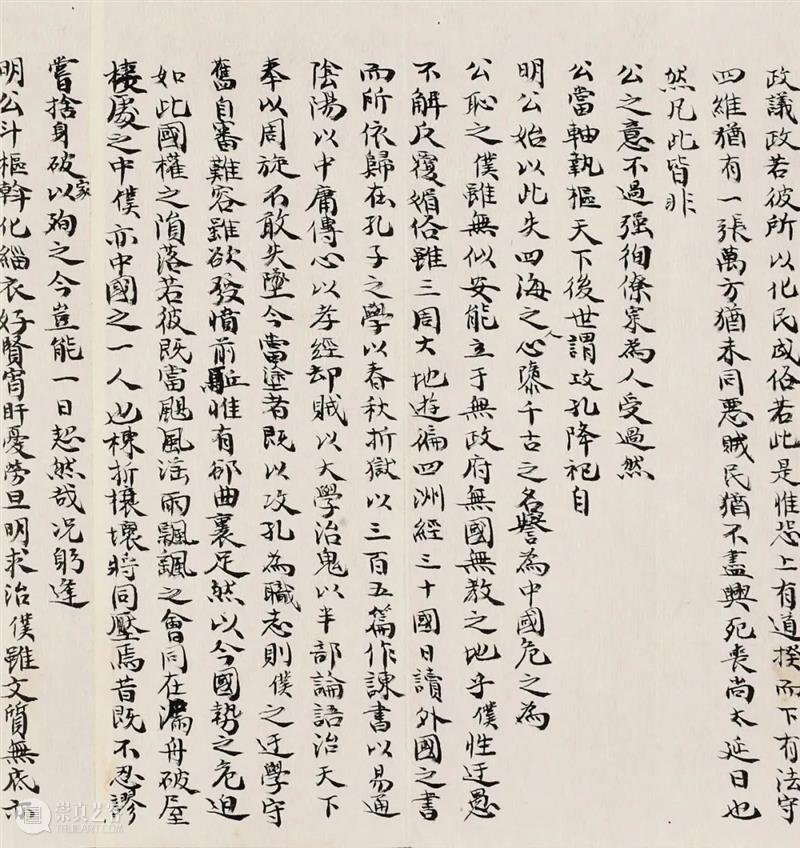 政議政若彼所以化民成俗若此是惟恐上有道揆而下有法守
四維猶有一張萬方猶未同惡賊民猶不盡興死喪尚太延日也
然凡此皆非
公之意不過强徇僚寀為人受過然
公當軸執樞天下後世謂攻孔降祀自
明公始以此失四海之人心隳千古之名譽為中國危之為
公恥之僕雖無似安能立于無政府無國無教之地乎僕性迂愚
不解反覆媚俗雖三周大地遊徧四洲經三十國日讀外國之書
而所依歸在孔子之學以春秋折獄以三百五篇作諫書以易通
陰陽以中庸傳心以孝經却賊以大學治鬼以半部論語治天下
奉以周旋不敢失墜今當塗者既以攻孔為職志則僕之迂學守
舊自審難容雖欲發憤前驅惟有郤曲裹足然以今國勢之危迫
如此國權之隕落若彼既當颶風淫雨飄颻之會同在漏舟破屋
棲處之中僕亦中國之一人也棟折榱壞將同壓焉昔既不忍謬
嘗捨身破家以殉之今豈能一日恝然哉况躬逢
明公斗樞斡化緇衣好賢宵旰憂勞旦明求治僕雖文質無底亦
崇真艺客
TRUEART.COM